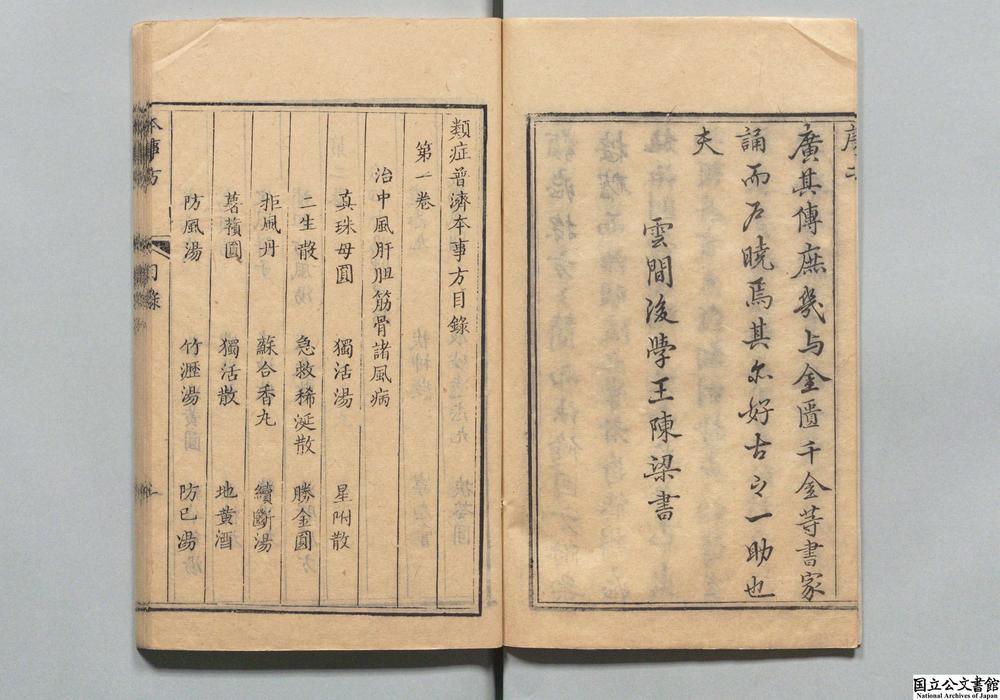 廣其傳庶幾与金匱千金䓁書家
誦而戸曉焉其尓好古之一助也
夫
雲間後學王陳梁書
類症普濟本事方目錄
第一卷
治中風肝胆筋骨諸風病
真珠母圓 獨活湯 星附散
二生散 急救稀涎散 勝金圓
拒風丹 蘇合香丸 續斷湯
薯蕷圓 獨活散 地黄酒
防風湯 竹瀝湯 防已湯
本事方 目錄
国立公文書館
National Archives of Japan